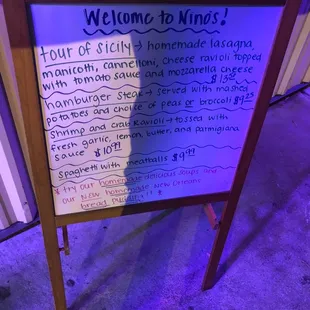 Welcome to Nino's!
tour of Sicily → homemade lasagna,
manicotti, cannelloni, cheese ravioli topped
with tomato sauce and mozzarella cheese
hamburger steak → served with mashed
potatoes and choice of peas or broccoli
Shrimp and Crab Ravioli → tossed with
fresh garlic, lemon, butter, and parmigiana
sauce $10.99
Spaghetti with meatballs $9.99
* try our homemade delicious soups and
our NEW homemade New Orleans
bread pudding!!!